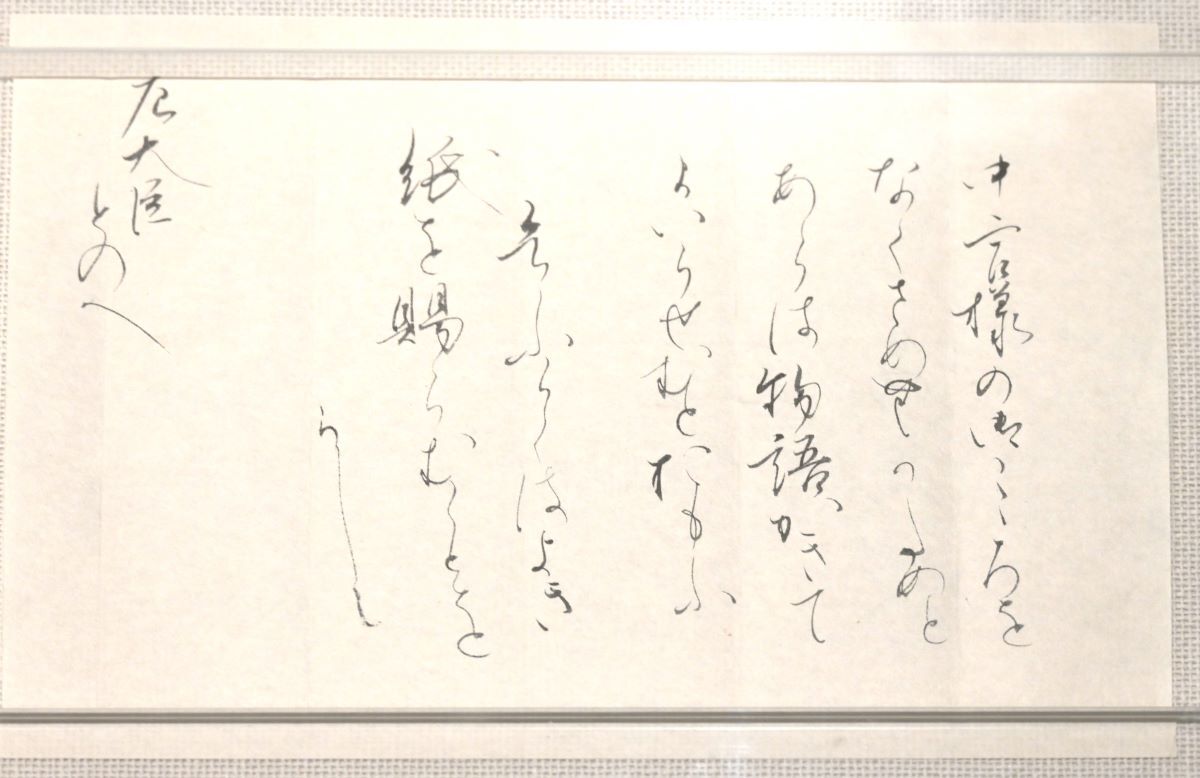 中宮様の御こゝろを
なくさめ ためと
あらは物語かきて
まいらせむとおもふ
乞ふらくはよき
紙を賜らむことを
かしこ
左大臣
とのへ